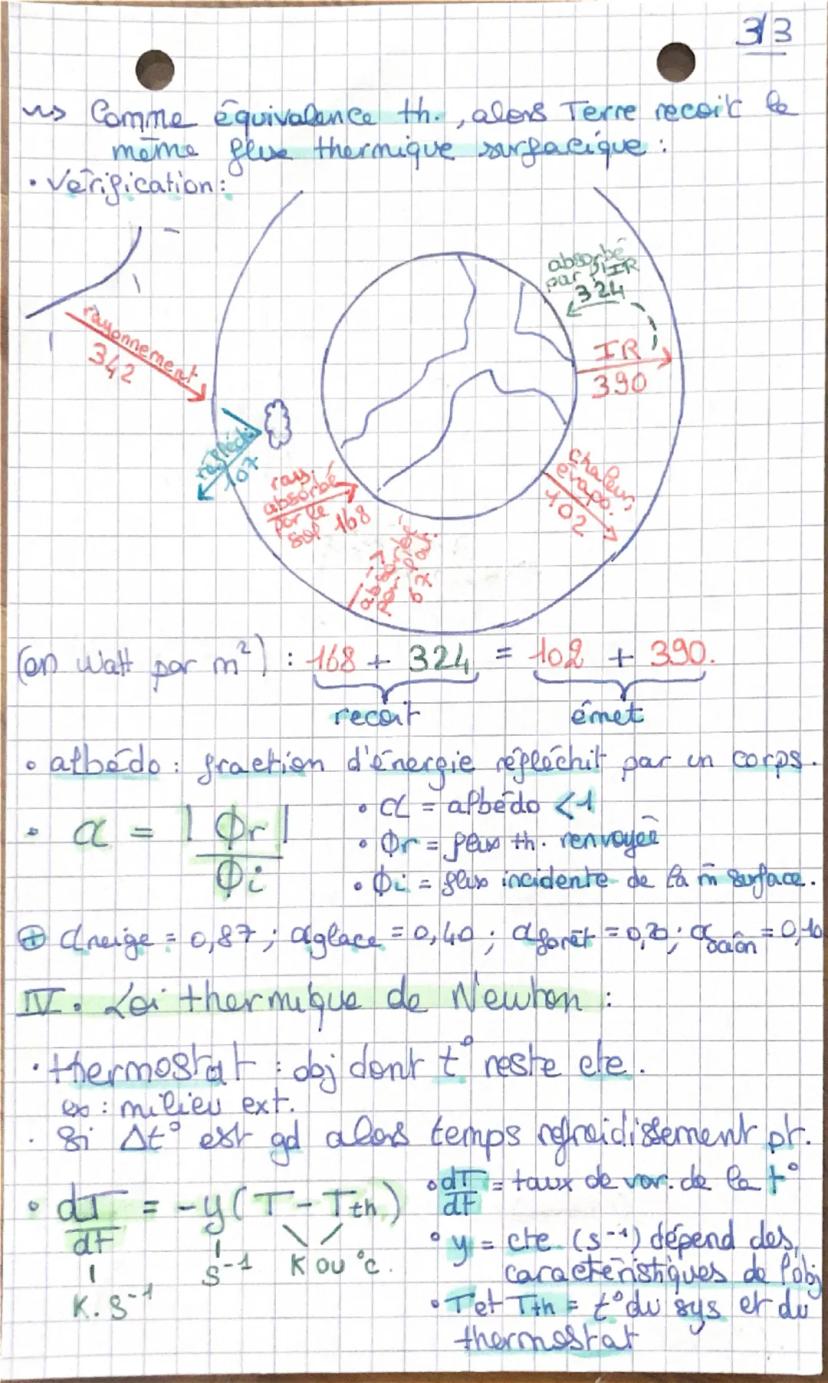 3/3
~> Comme équivalence th., alors Terre recoit le
même flux thermique surfacique :
• Vérification :
rayonnement
342
réfléchi
107
ray.
absorbé
par le
sol 168
absorbé
par
67
absorbé
par IR
324
IR
390
chaleur,
évapo.
102
(en Watt par m²) : 168 + 324 = 102 + 390.
recoit émet
• albédo : fraction d'énergie réfléchit par un corps.
• α = |Φr| / Φi
• α = albédo <1
• Φr = flux th. renvoyée
• Φi = flux incidente de la m̄ surface.
⊕ αneige = 0,87 ; αglace = 0,40 ; αforêt = 0,20 ; α = 0,10
IV. Loi thermique de Newton :
• thermostat : obj dont t° reste cte.
ex : milieu ext.
• Si Δt° est gd alors temps refroidissement pt.
• dT/dt = -y (T - Tth)
K.s⁻¹ s⁻¹ K ou °c.
• dT/dt = taux de var. de la t°
• y = cte (s⁻¹) dépend des
caractéristiques de l'obj
• T et Tth = t° du sys et du
thermostat